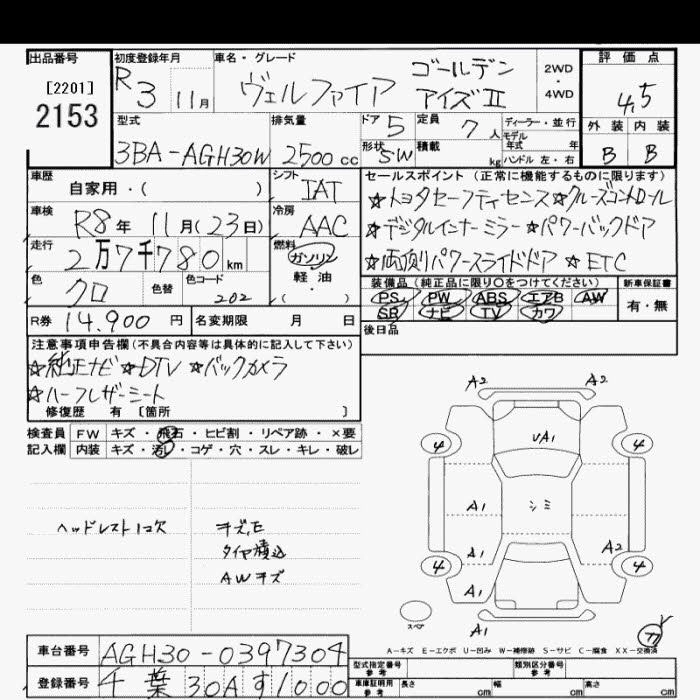 出品番号 初度登録年月 車名・グレード 評価点
[2201] R3 11月 ヴェルファイア ゴールデン 2WD
2153 アイズⅡ ・4WD 4,5
型式 排気量 ドア5 定員7人 ディーラー・並行 外装 内装
モデル年式 年
3BA-AGH30W 2500cc 形状SW 積載 kg ハンドル 左・右 B B
車歴 シフト セールスポイント (正常に機能するものに限ります)
自家用・( ) IAT ☆トヨタセーフティセンス☆クルーズコントロール
車検 R8年 11月(23日) 冷房 AAC ☆デジタルインナーミラー☆パワーバックドア
走行 2万7千780km 燃料 ガソリン ☆両側パワースライドドア ☆ETC
軽油
・( )
色 クロ 色替 色コード 202 装備品(純正品に限り○をつけてください) 新車保証書
PS PW ABS エアB AW 有・無
SR ナビ TV カワ
R券 14.900円 名変期限 月 日 後日品
注意事項申告欄(不具合内容等は具体的に記入して下さい)
☆純正ナビ ☆DTV ☆バックカメラ
☆ハーフレザーシート
修復歴 有 [箇所 ]
検査員 FW キズ・飛石・ヒビ割・リペア跡・×要
記入欄 内装 キズ・汚レ・コゲ・穴・スレ・キレ・破レ
A2 A2
4 UA1 4
A1 シミ
ヘッドレスト1コ欠 キズ,E
タイヤ積込 A1 A2
AWキズ 4 4
A1
スペア A1
A-キズ E-エクボ U-凹み W-補修跡 S-サビ C-腐食 XX-交換済
車台番号 AGH30-0397304 型式指定番号 参考 類別区分番号 参考
登録番号 千葉 30A す1000 車庫証明用 参考 長さ cm 幅 cm 高さ cm